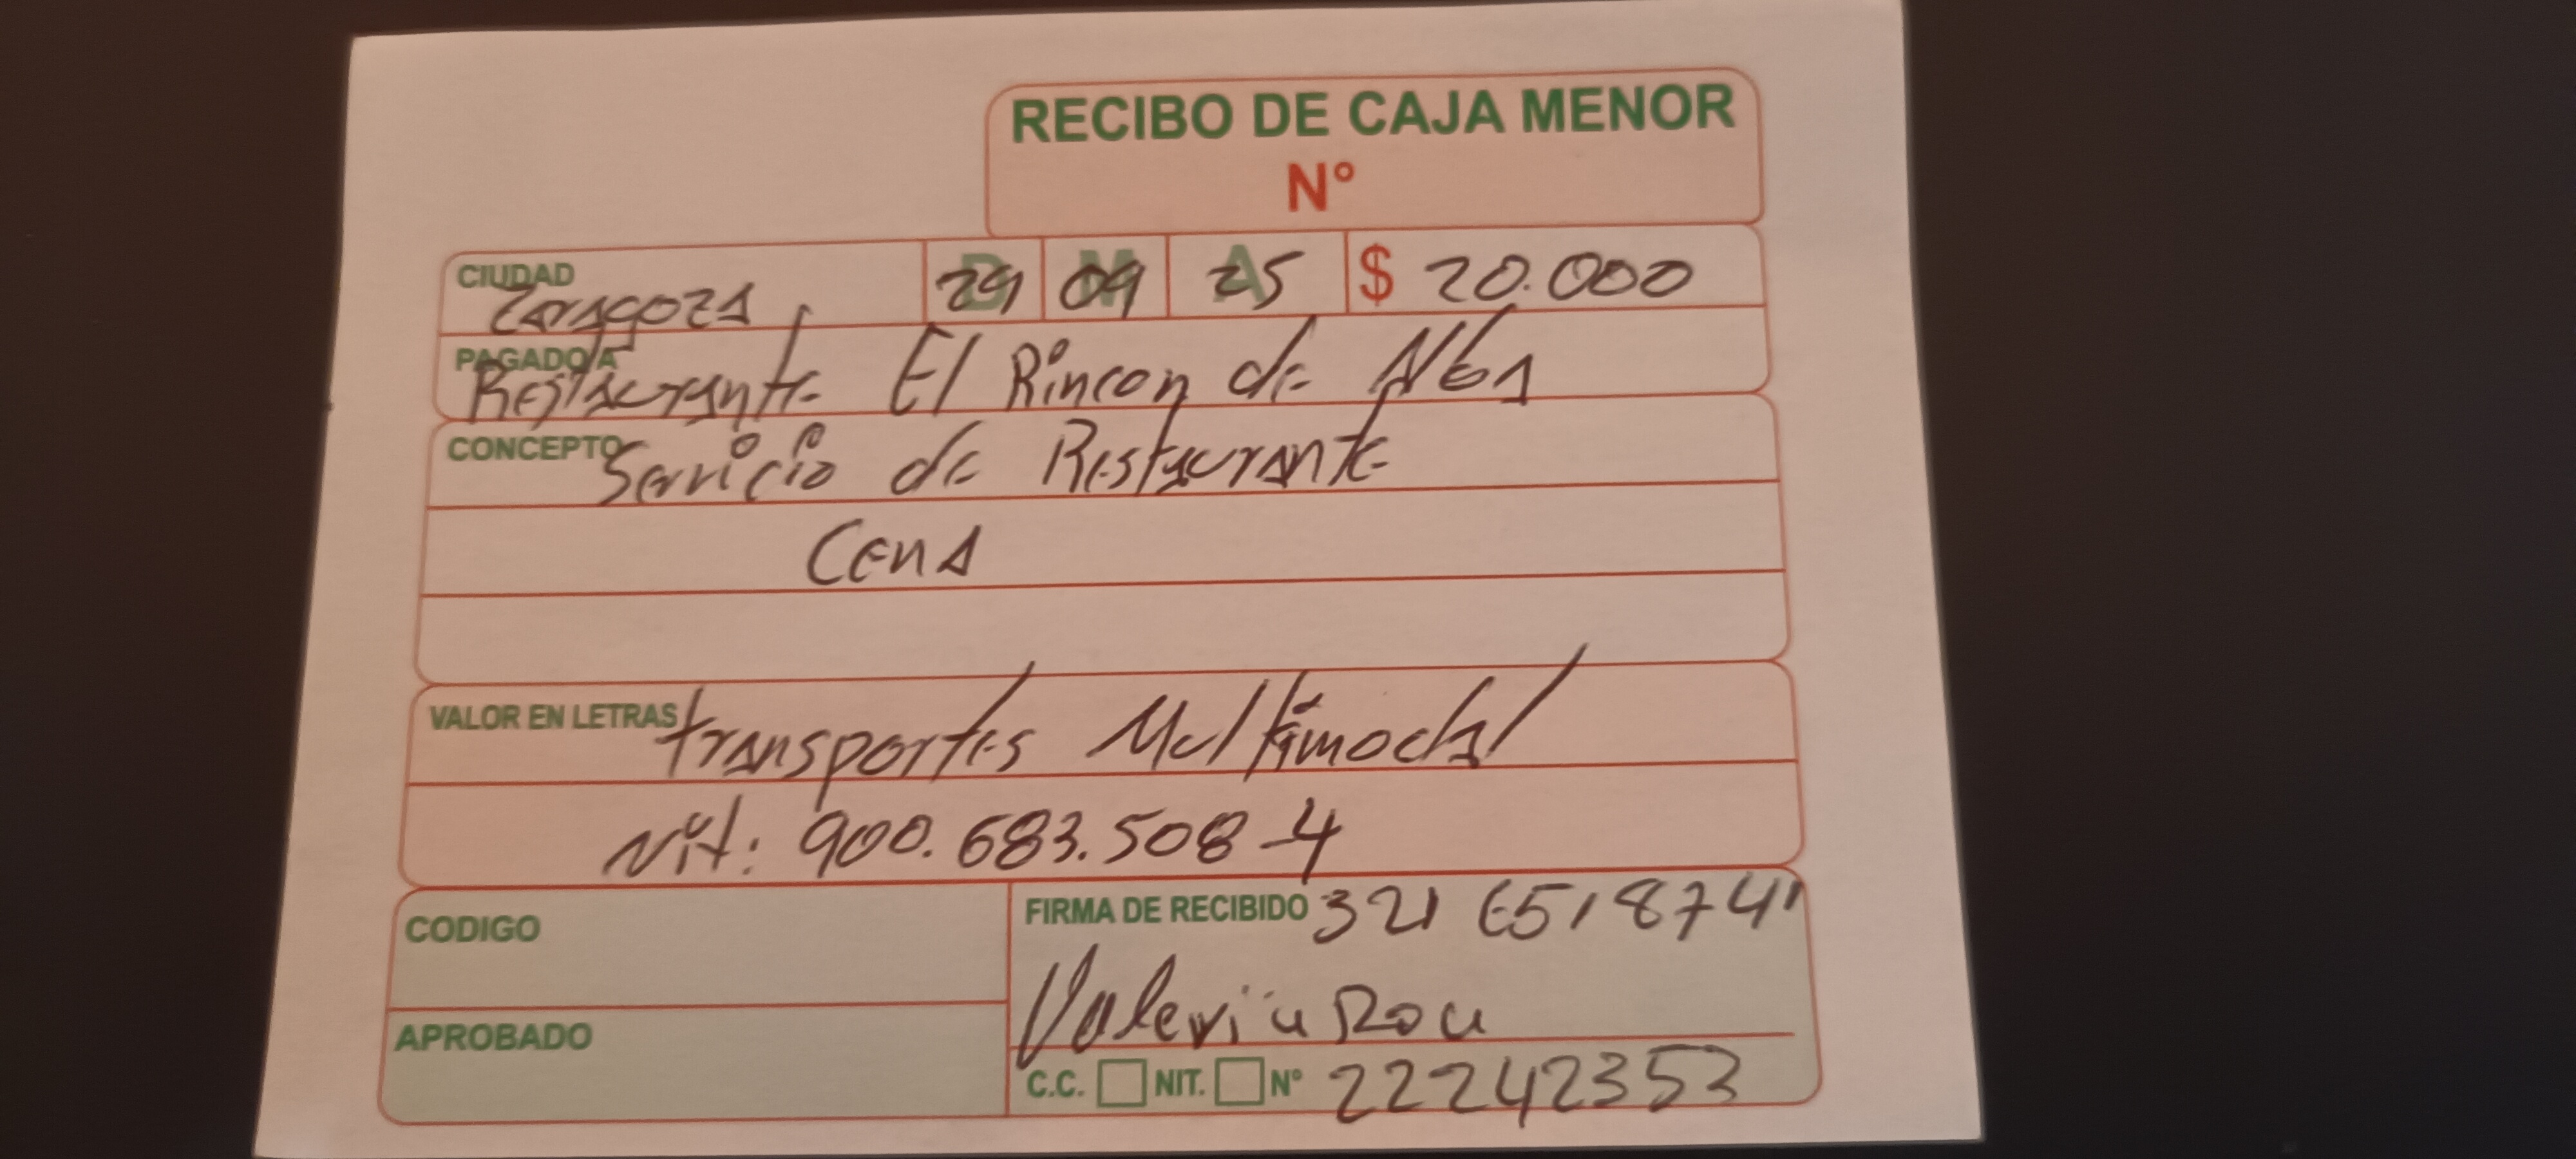 RECIBO DE CAJA MENOR
N°
CIUDAD Zaragoza D 29 M 09 A 25 $ 20.000
PAGADO A Restaurante El Rincon de
CONCEPTO Servicio de Restaurante
Cena
VALOR EN LETRAS transportes Multimodal
Nit: 900.683.508-4
CODIGO
FIRMA DE RECIBIDO 321 6518741
Valeria
APROBADO
C.C. NIT. N° 22242353